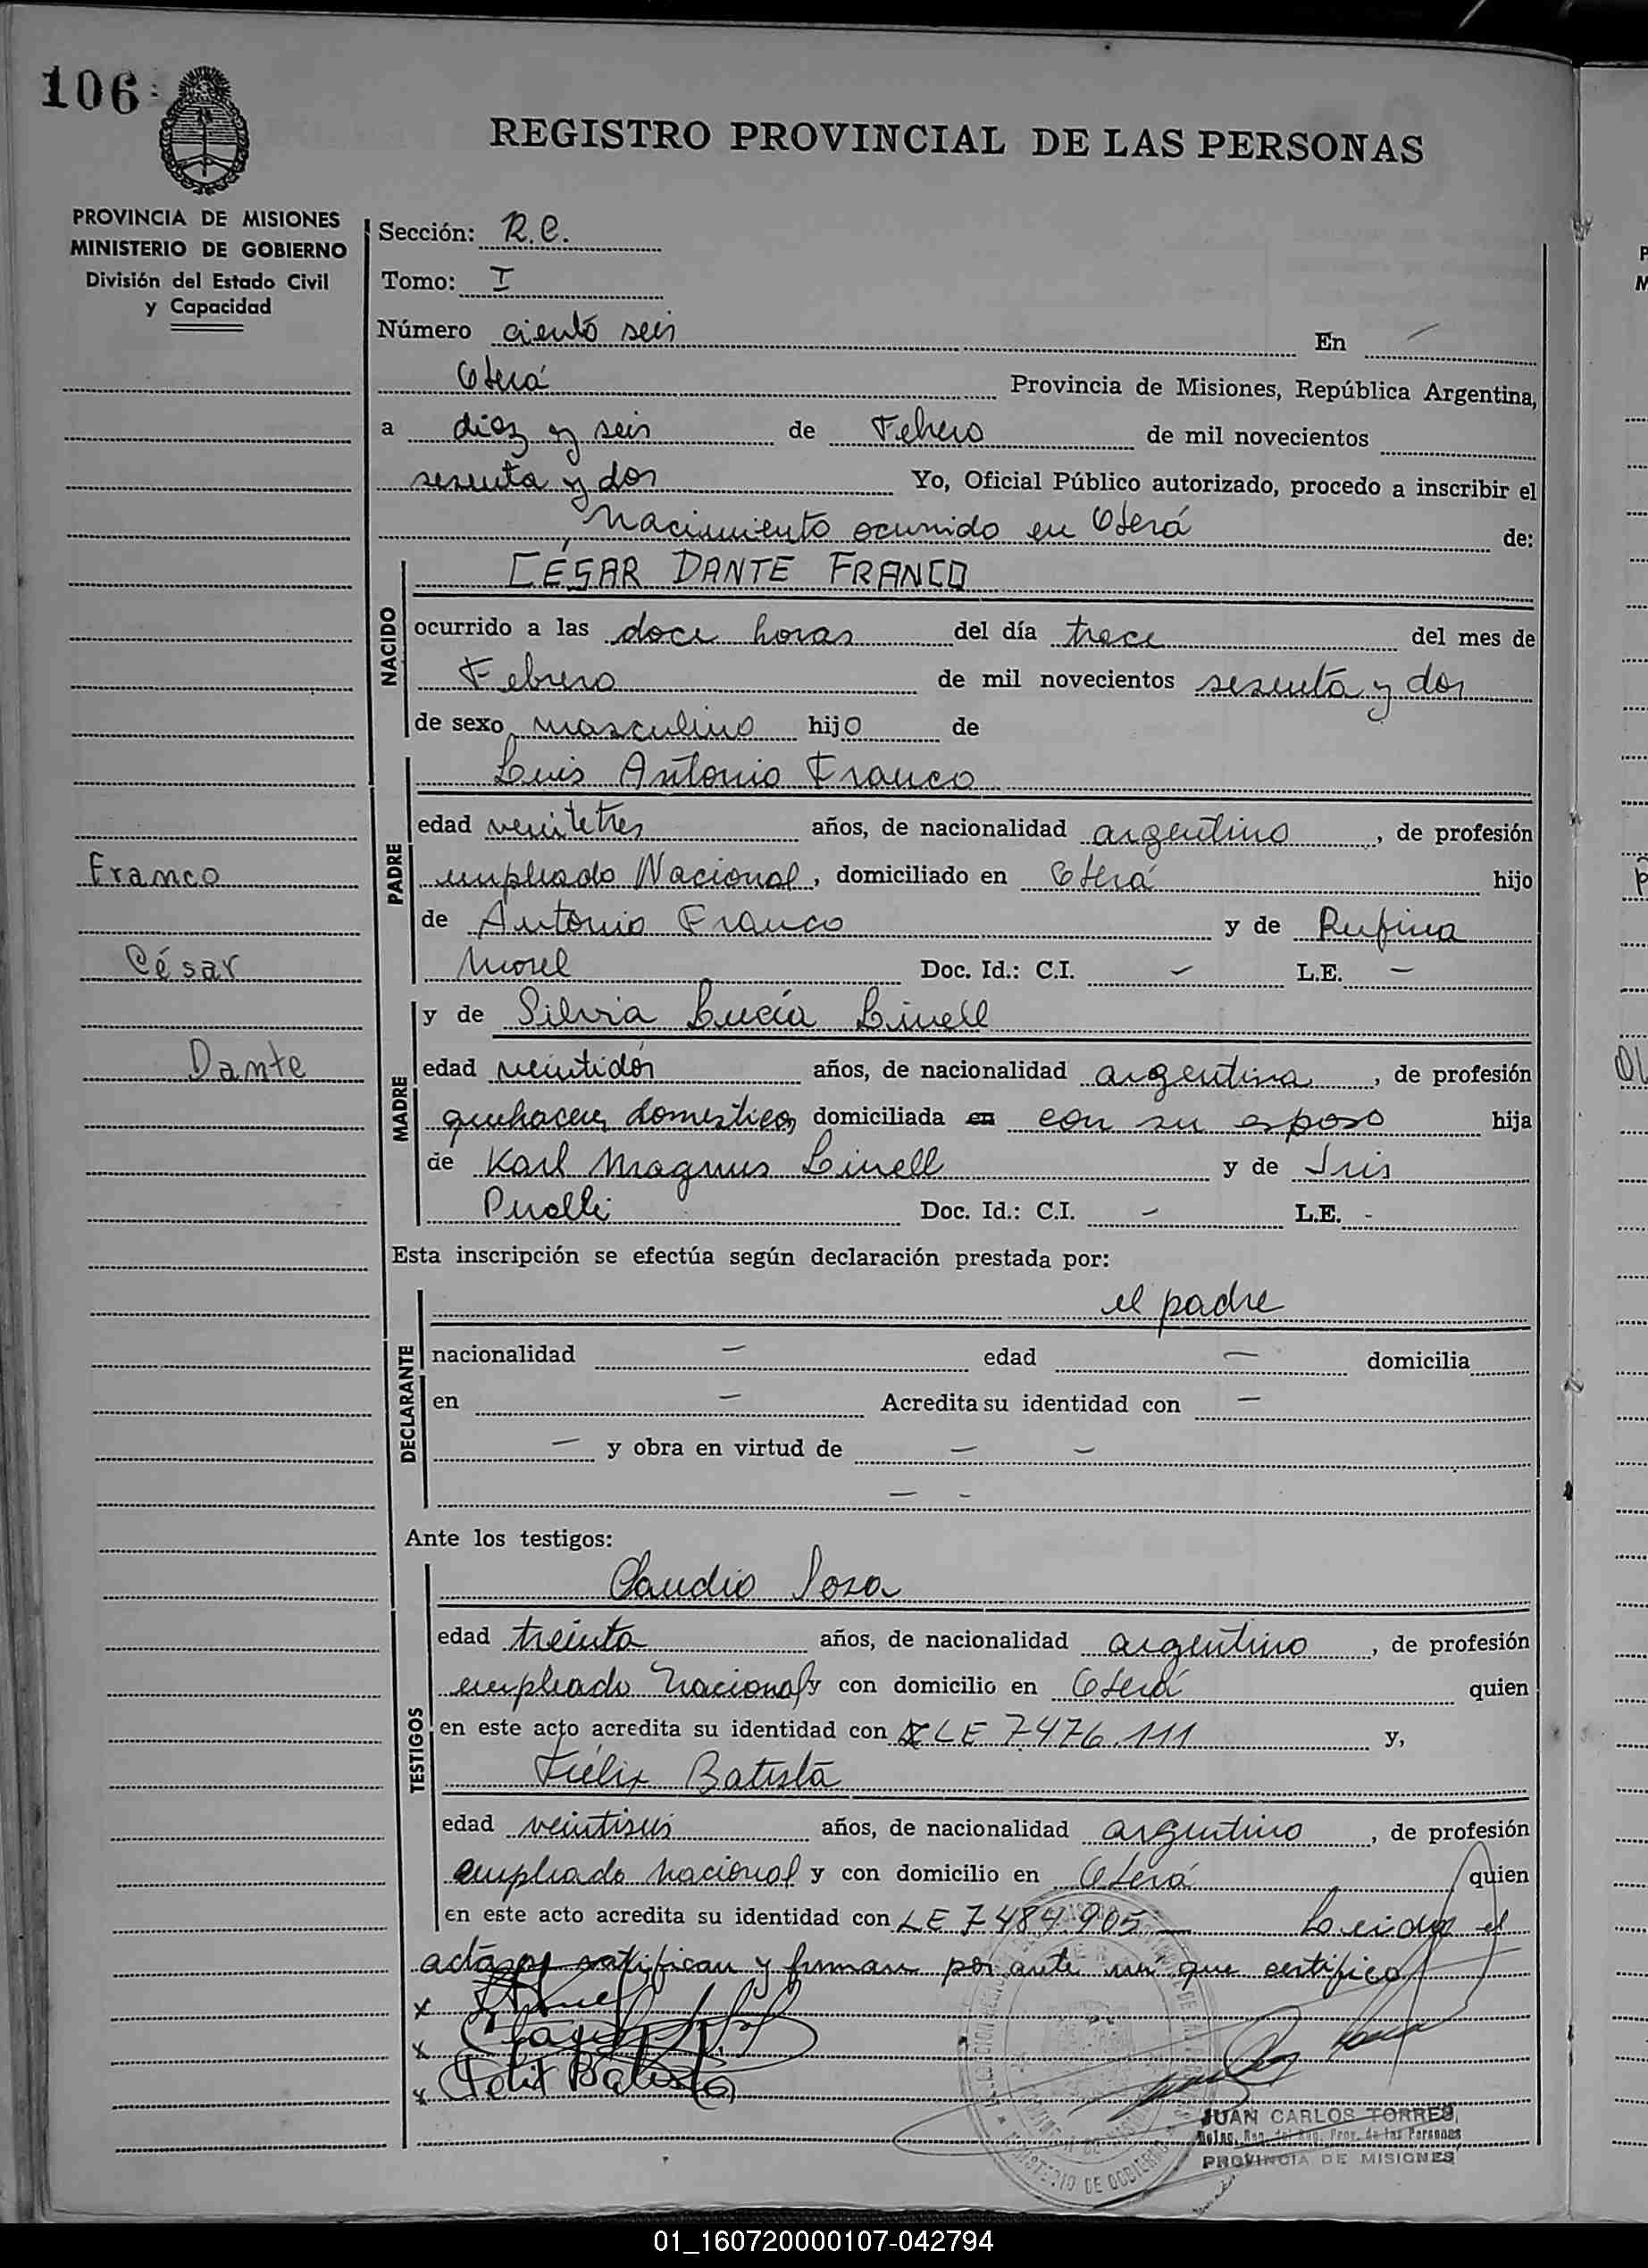 106
REGISTRO PROVINCIAL DE LAS PERSONAS
PROVINCIA DE MISIONES
MINISTERIO DE GOBIERNO
División del Estado Civil
y Capacidad
Sección: R.C.
Tomo: I
Número ciento seis En
Oberá Provincia de Misiones, República Argentina,
a diez y seis de Febrero de mil novecientos
sesenta y dos Yo, Oficial Público autorizado, procedo a inscribir el
Nacimiento ocurrido en Oberá de:
NACIDO
CÉSAR DANTE FRANCO
ocurrido a las doce horas del día trece del mes de
Febrero de mil novecientos sesenta y dos
de sexo masculino hijo de
PADRE
Luis Antonio Franco
edad veintetres años, de nacionalidad argentino, de profesión
empleado Nacional, domiciliado en Oberá hijo
de Antonio Franco y de Rufina
Morel Doc. Id.: C.I. – L.E. –
Franco
César
Dante
MADRE
y de Silvia Lucía Linell
edad veintidós años, de nacionalidad argentina, de profesión
quehaceres domesticos domiciliada en con su esposo hija
de Karl Magnus Linell y de Iris
Doc. Id.: C.I. – L.E. -
Esta inscripción se efectúa según declaración prestada por:
el padre
DECLARANTE
nacionalidad – edad – domicilia
en – Acredita su identidad con –
– y obra en virtud de – –
– -
Ante los testigos:
TESTIGOS
Claudio Sosa
edad treinta años, de nacionalidad argentino, de profesión
empleado Nacional y con domicilio en Oberá quien
en este acto acredita su identidad con LE 7.476.111 y,
Félix Batista
edad veintiseis años, de nacionalidad argentino, de profesión
empleado Nacional y con domicilio en Oberá quien
en este acto acredita su identidad con LE 7484905 – Leida el
acta se ratifican y firman por ante mí que certifico
x
x
x Felix Batista
JUAN CARLOS TORRES
Deleg. Reg. del Reg. Prov. de las Personas
PROVINCIA DE MISIONES
01_160720000107-042794